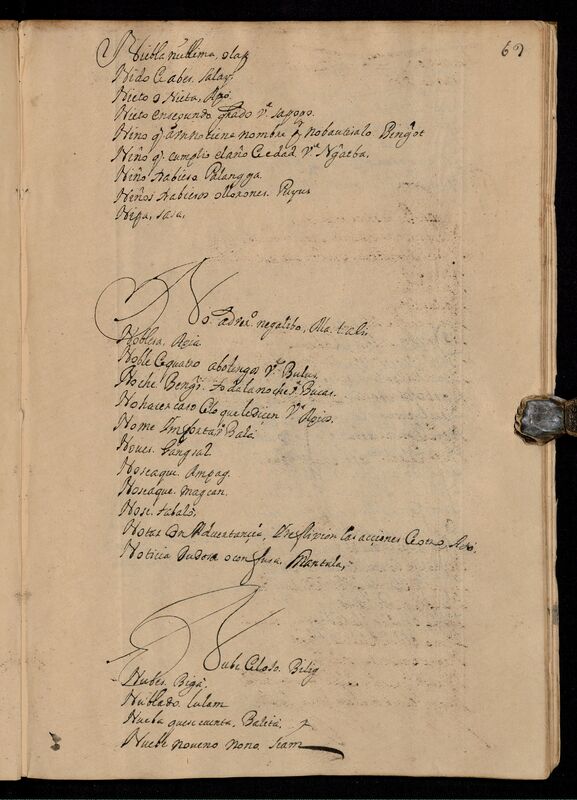 69
Niebla nullima, olap
Nido de abes. Salay.
Nieto o Nieta, Apo.
Nieto ensegundo grado vª. sagopo.
Nino q. aun no tiene nombre q nobautisalo. Bengot
Niño q. cumplio elaño de edad vª. Ngaeba.
Niño trabieso Palangga.
Niños trabiesos o llorones. Puyus
Nipa, sasa,
No. adver. negatibo, Ala. tcali,
Noblesa.
Noble de quatro abolengos vª. Bulus,
Noche. Bengi. toda la noche, Bucas.
No hacer caso de lo que le dicen vª.
No me Importa. Bala
Noues. Pangsal.
Nose aque. Ampag.
Nose aque. magcan.
Nose. tabalo,
Notar con Aduertancia, las acciones de otro,
Noticia dudosa o confusa. Mantula,
Nube de loso. Bilig
Nubes. Biga.
Nublado. lulam
Nueba quese cuenta, Baleta,
Nuebe noueno nono. Siam